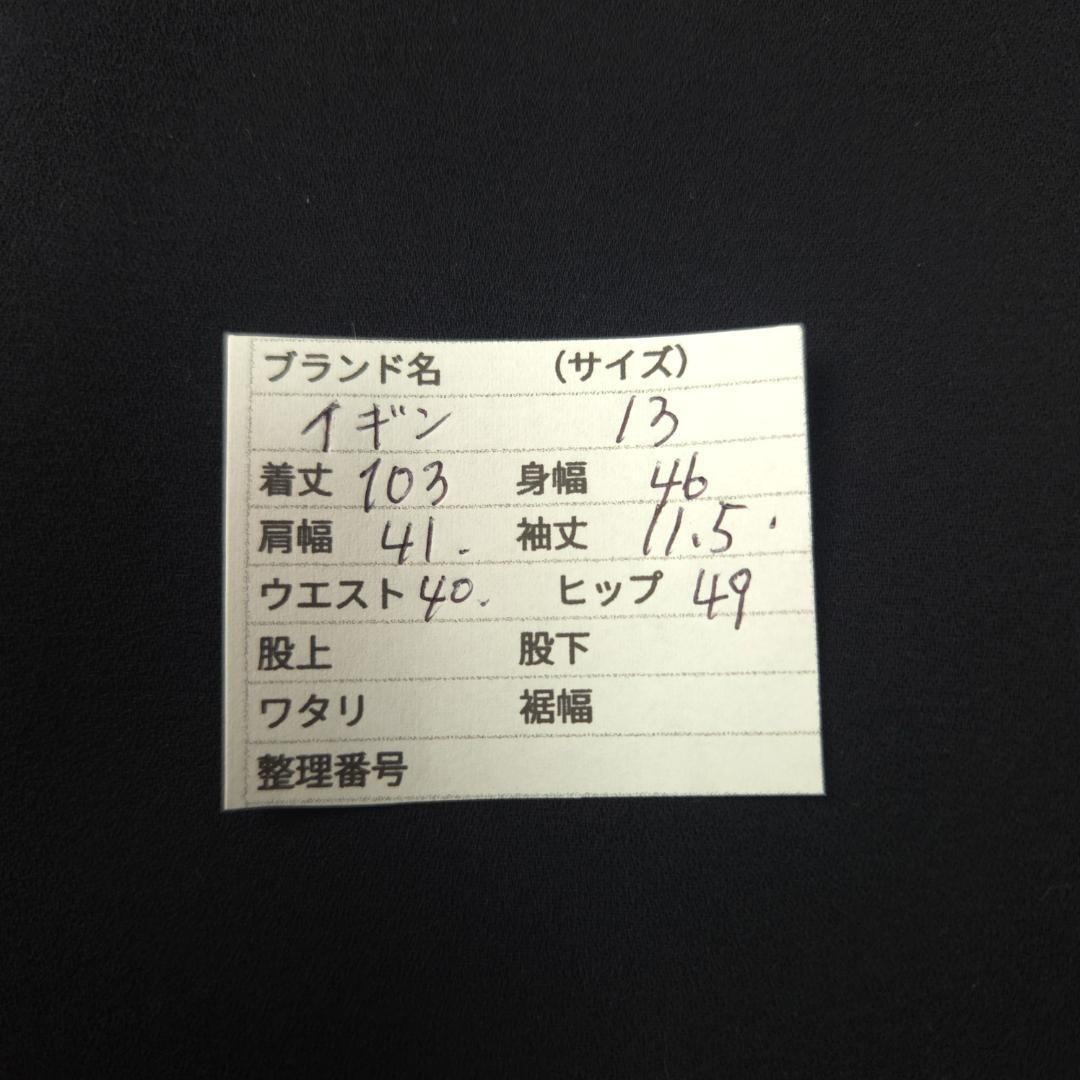 ブランド名 (サイズ)
イギン 13
着丈 103 身幅 46
肩幅 41. 袖丈 11.5
ウエスト 40. ヒップ 49
股上 股下
ワタリ 裾幅
整理番号